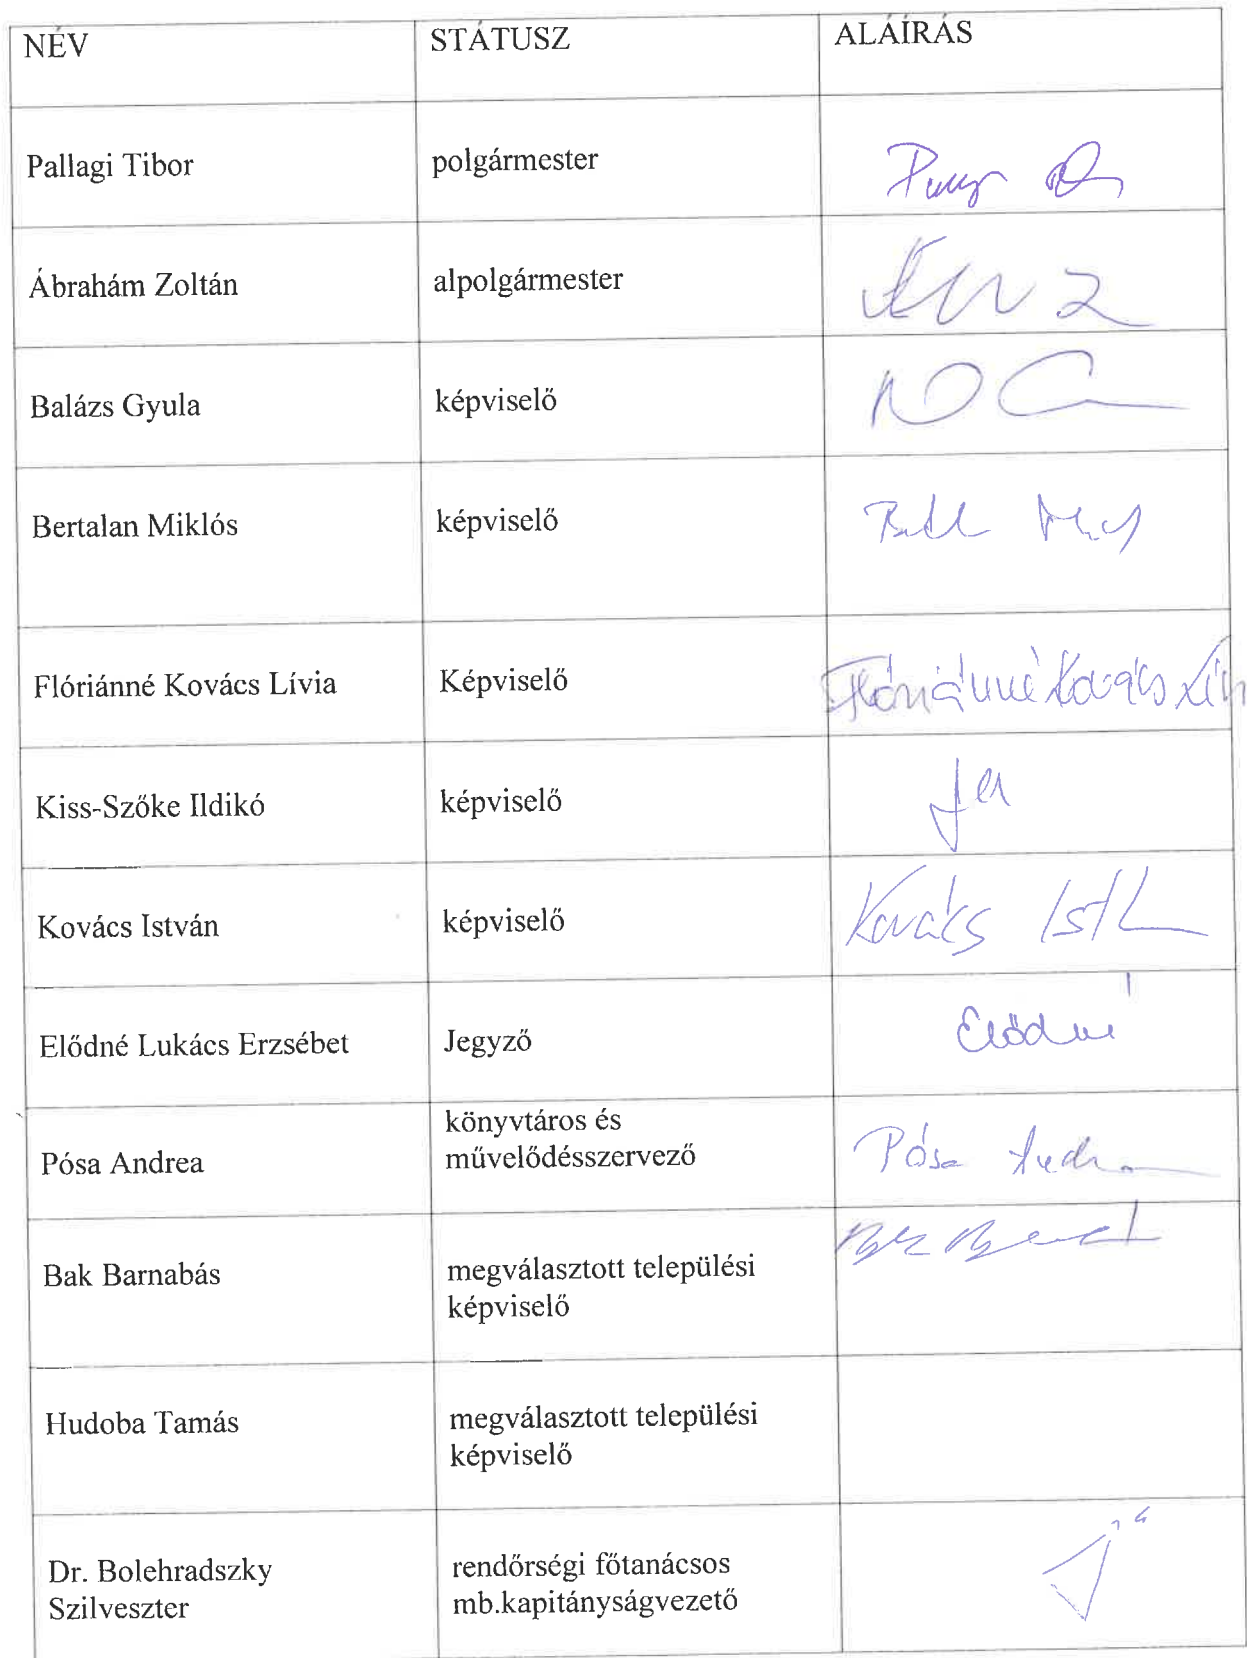 NÉV STÁTUSZ ALÁÍRÁS
Pallagi Tibor polgármester
Ábrahám Zoltán alpolgármester
Balázs Gyula képviselő
Bertalan Miklós képviselő
Flóriánné Kovács Lívia Képviselő Flóriánné Kovács
Kiss-Szőke Ildikó képviselő
Kovács István képviselő Kovács
Elődné Lukács Erzsébet Jegyző Elődné
könyvtáros és
Pósa Andrea művelődésszervező Pósa
Bak Barnabás megválasztott települési
képviselő
Hudoba Tamás megválasztott települési
képviselő
Dr. Bolehradszky rendőrségi főtanácsos
Szilveszter mb.kapitányságvezető